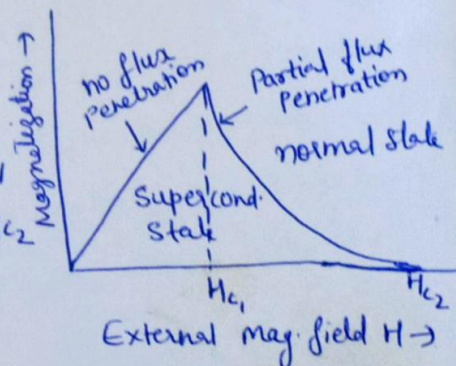 Magnetization →
no flux
penetration
Partial flux
penetration
normal state
Supercond.
State
c2
Hc1
Hc2
External mag. field H →